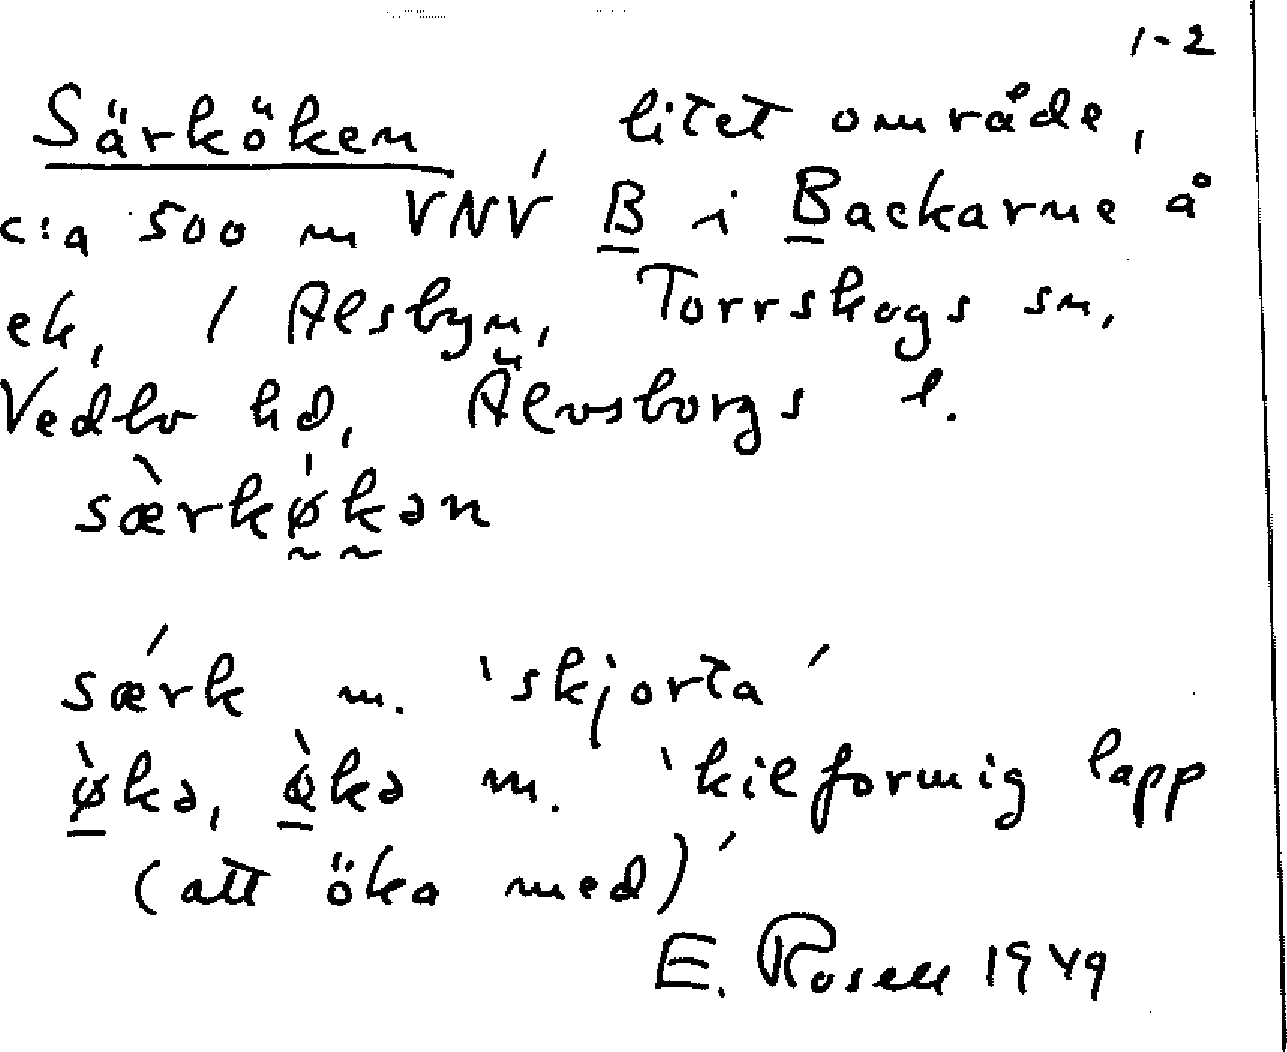 1-2
Särköken, litet område,
c:a 500 m VNV B i Backarne å
ek, i Ålsbyn, Torrskogs sn,
Vedbo hd, Älvsborgs l.
sæ̀rkǿ̰k̰ən
sǽrk m. 'skjorta'
ø̱̀kə, ø̱̀kə m. 'kilformig lapp
(att öka med)'
E. Rosell 1949